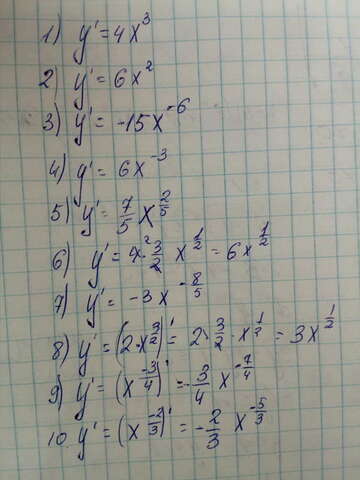 1) y' = 4x³
2) y' = 6x²
3) y' = -15x⁻⁶
4) y' = 6x⁻³
5) y' = 7/5 x^(2/5)
6) y' = 4·3/2 x^(1/2) = 6x^(1/2)
7) y' = -3x^(-8/5)
8) y' = (2·x^(3/2))' = 2·3/2·x^(1/2) = 3x^(1/2)
9) y' = (x^(-3/4))' = -3/4 x^(-7/4)
10. y' = (x^(-2/3))' = -2/3 x^(-5/3)